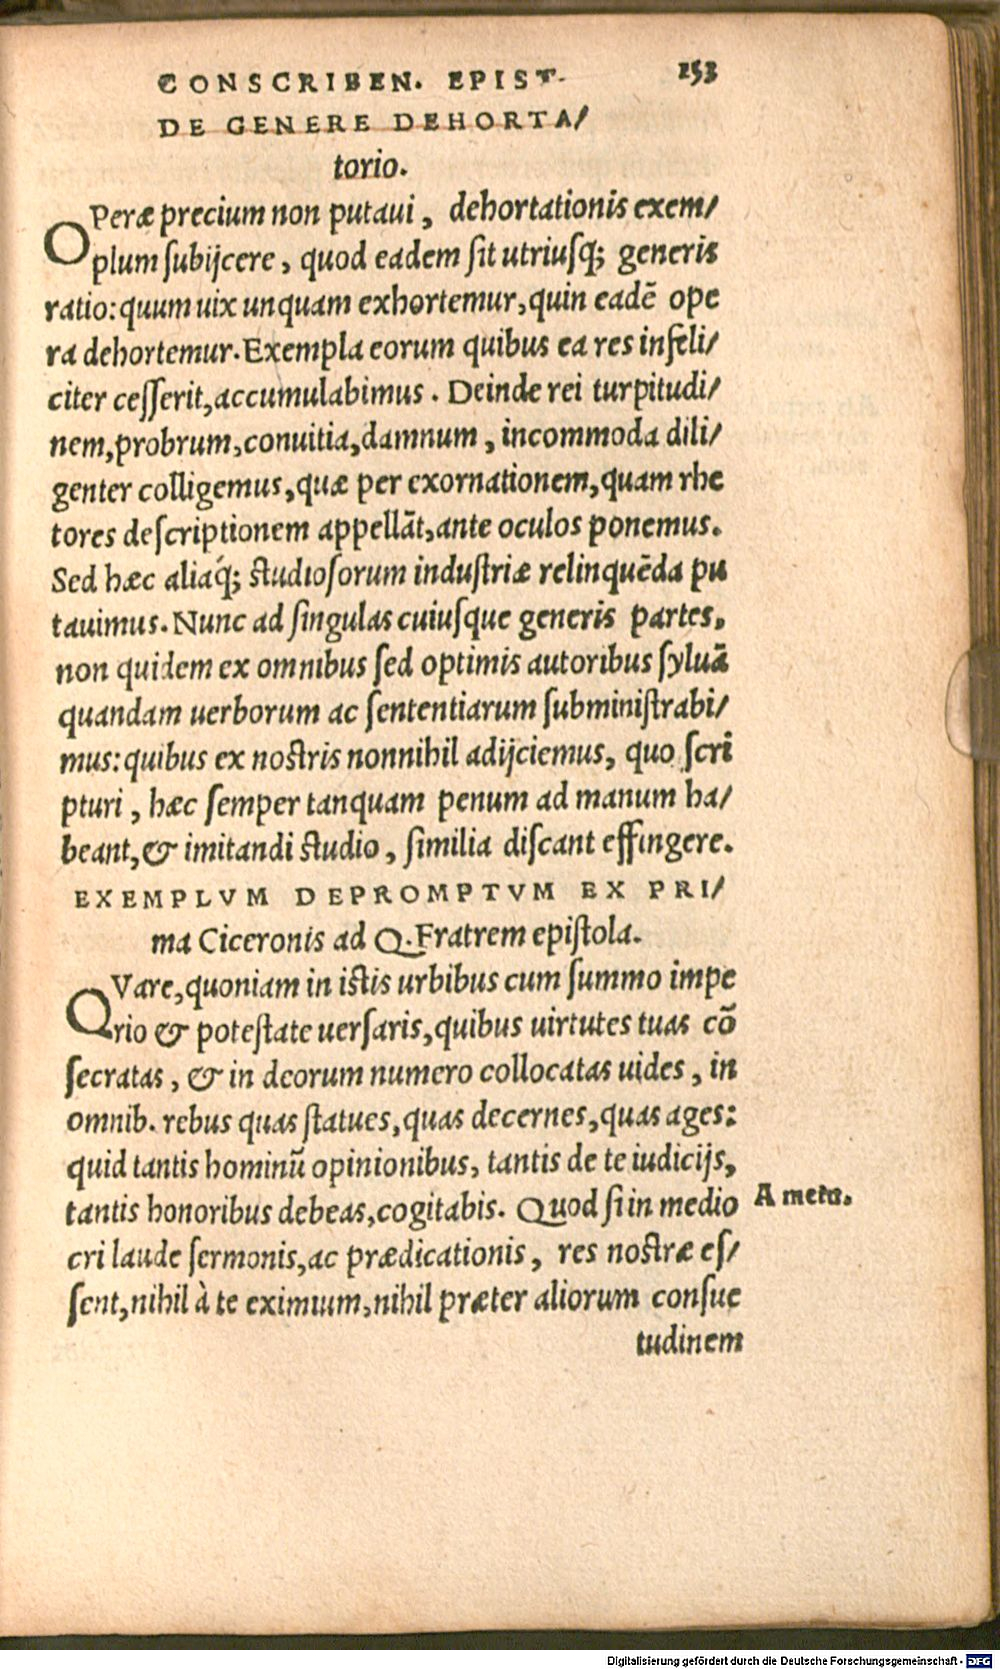 CONSCRIBEN. EPIST. 153
DE GENERE DEHORTA/
torio.
OPeræ precium non putaui, dehortationis exem/
plum ſubijcere, quod eadem ſit utriuſq; generis
ratio: quum uix unquam exhortemur, quin eadē ope
ra dehortemur. Exempla eorum quibus ea res infeli/
citer ceſſerit, accumulabimus. Deinde rei turpitudi/
nem, probrum, conuitia, damnum, incommoda dili/
genter colligemus, quæ per exornationem, quam rhe
tores deſcriptionem appellāt, ante oculos ponemus.
Sed hæc aliaq́; ſtudioſorum induſtriæ relinquēda pu
tauimus. Nunc ad ſingulas cuiuſque generis partes,
non quidem ex omnibus ſed optimis autoribus ſyluā
quandam uerborum ac ſententiarum ſubminiſtrabi/
mus: quibus ex noſtris nonnihil adijciemus, quo ſcri
pturi, hæc ſemper tanquam penum ad manum ha/
beant, & imitandi ſtudio, ſimilia diſcant effingere.
EXEMPLVM DEPROMPTVM EX PRI/
ma Ciceronis ad Q. Fratrem epiſtola.
QVare, quoniam in iſtis urbibus cum ſummo impe
rio & poteſtate uerſaris, quibus uirtutes tuas cō
ſecratas, & in deorum numero collocatas uides, in
omnib. rebus quas ſtatues, quas decernes, quas ages:
quid tantis hominū opinionibus, tantis de te iudicijs,
tantis honoribus debeas, cogitabis. Quod ſi in medio
A metu.
cri laude ſermonis, ac prædicationis, res noſtræ eſ/
ſent, nihil à te eximium, nihil præter aliorum conſue
tudinem
Digitalisierung gefördert durch die Deutsche Forschungsgemeinschaft - DFG